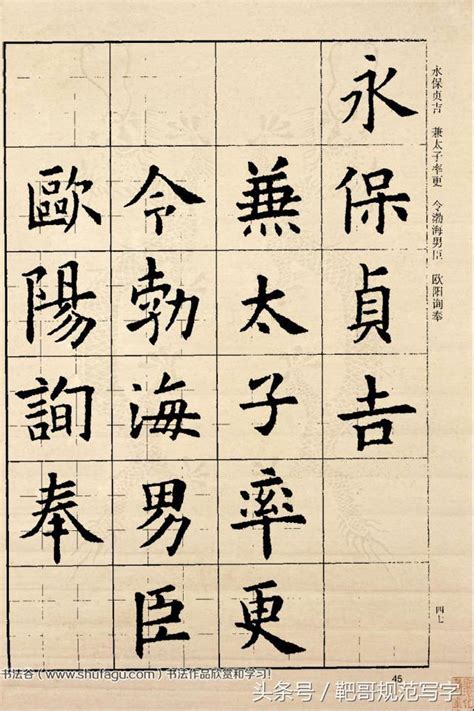 永保贞吉　兼太子率更　令渤海男臣　欧阳询奉
永保貞吉
兼太子率更
令勃海男臣
歐陽詢奉
四七
45
书法谷（www.shufagu.com）书法作品欣赏和学习！
头条号/靶哥规范写字